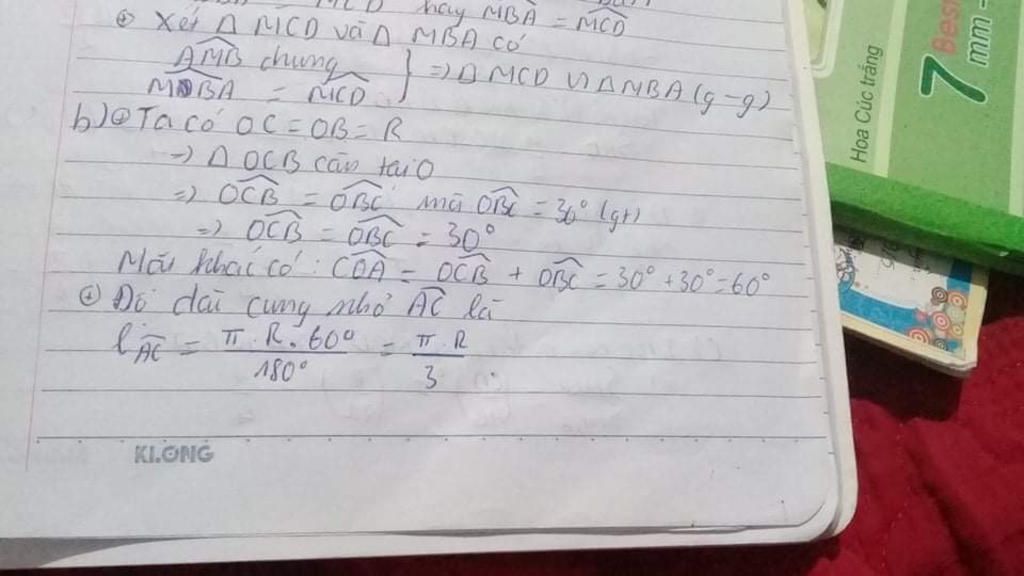 MCD hay MBA = MCD
+ Xét Δ MCD và Δ MBA có
AMB chung
MBA = MCD } => Δ MCD ∽ Δ MBA (g-g)
b) + Ta có OC = OB = R
=> Δ OCB cân tại O
=> OCB = OBC mà OBC = 30° (gt)
=> OCB = OBC = 30°
Mặt khác có: COA = OCB + OBC = 30° + 30° = 60°
+ Độ dài cung nhỏ AC là
l AC = π.R.60° / 180° = π.R / 3
KLONG
Hoa Cúc trắng
7
Best
mm